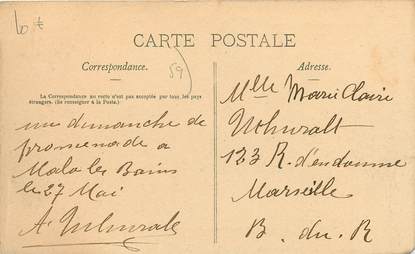 6 €
CARTE POSTALE
Correspondance.
59
Adresse.
La Correspondance au recto n'est pas acceptée par tous les pays
étrangers. (Se renseigner à la Poste.)
un dimanche de
promenade a
Malo les Bains
le 27 Mai
A.
Mlle Marie Claire
133 R. d'endoume
Marseille
B. du. R